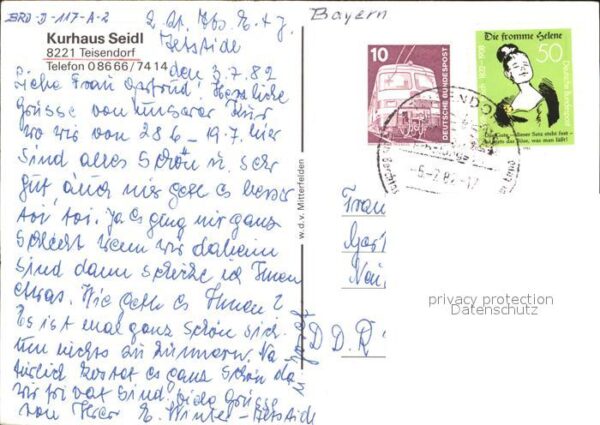 BRD-D-117-A-2
Bayern
Kurhaus Seidl
8221 Teisendorf
Telefon 0 86 66 / 74 14
den 3.7.82
Liebe Frau! Herzliche
Grüsse von unserer Kur
wo wir von 28.6 - 19.7. hier
sind alles schön u. sehr
gut, auch mir geht es besser
toi, toi. Ja es ging mir ganz
schlecht wenn wir daheim
sind dann schicke ich Ihnen
etwas. Wie geht es Ihnen?
Es ist mal ganz schön sich
um nichts zu kümmern. Na
türlich kostet es ganz schön da
wir privat sind. Viele Grüsse
von Ihrer E. Winter
w.d.v. Mitterfelden
10
DEUTSCHE BUNDESPOST
Die fromme Helene
50
Deutsche Bundespost
1832 - 1908
Das Gute — dieser Satz steht fest —
ist stets das Böse, was man läßt!
Frau
D.D.R
privacy protection
Datenschutz